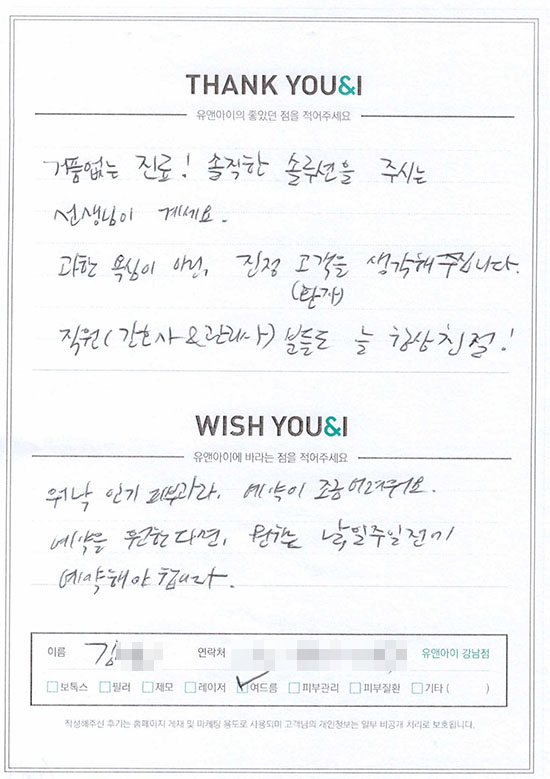 THANK YOU&I
유앤아이의 좋았던 점을 적어주세요
거품없는 진료! 솔직한 솔루션을 주시는
선생님이 계세요.
과한 욕심이 아닌, 진정 고객을 생각해주십니다.
(환자)
직원(간호사&관리사)분들도 늘 항상 친절!
WISH YOU&I
유앤아이에 바라는 점을 적어주세요
워낙 인기 피부과라, 예약이 조금 어려워요.
예약을 원한다면, 원하는 날 일주일전기
예약해야 합니다.
이름 김 연락처 유앤아이 강남점
보톡스 필러 제모 레이저 여드름 피부관리 피부질환 기타 ( )
작성해주신 후기는 홈페이지 게재 및 마케팅 용도로 사용되며 고객님의 개인정보는 일부 비공개 처리로 보호됩니다.